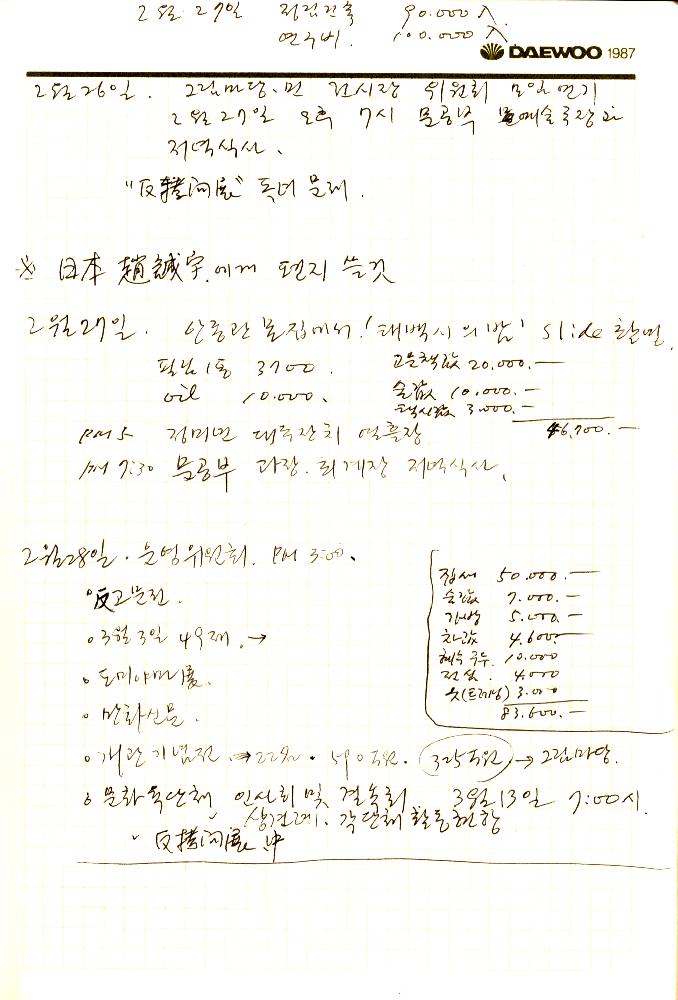 2월 27일 정립건축 90.000 入.
연구비. 100.000 入
DAEWOO 1987
2월 26일. 그림마당·민 전시장 위원회 모임 연기
2월 27일 오후 7시 문공부 예술국장과
저녁식사.
"反拷问展" 문제.
※ 日本 趙誠宇.에게 편지 쓸것
2월 27일. 안종관 문집에서! '태백시의 밤' Slide 촬영.
필름 1통 3700. 고은책값 20.000.—
oil 10.000. 술값 10.000.—
택시값 3.000.—
46,700.—
PM 5 정미면 대목잔치
PM 7:30 문공부 과장. 저녁식사.
2월 28일. 운영위원회. PM 3:00.
집세 50.000.—
술값 7.000.—
가방 5.000.—
찻값 4.600—
10.000
4.000
옷(트레닝) 3.000
83.600.—
◦ 反고문전.
◦ 3월 3일 49재. →
◦ 도미야마展.
◦ 만화신문.
◦ 개관기념전 → 22% · 590만원. 325만원 → 그림마당.
◦ 문화육단체 인사회 및 결속회 3월 13일 7:00시.
상견례. 각단체 활동현황
◦ 反拷问展 中